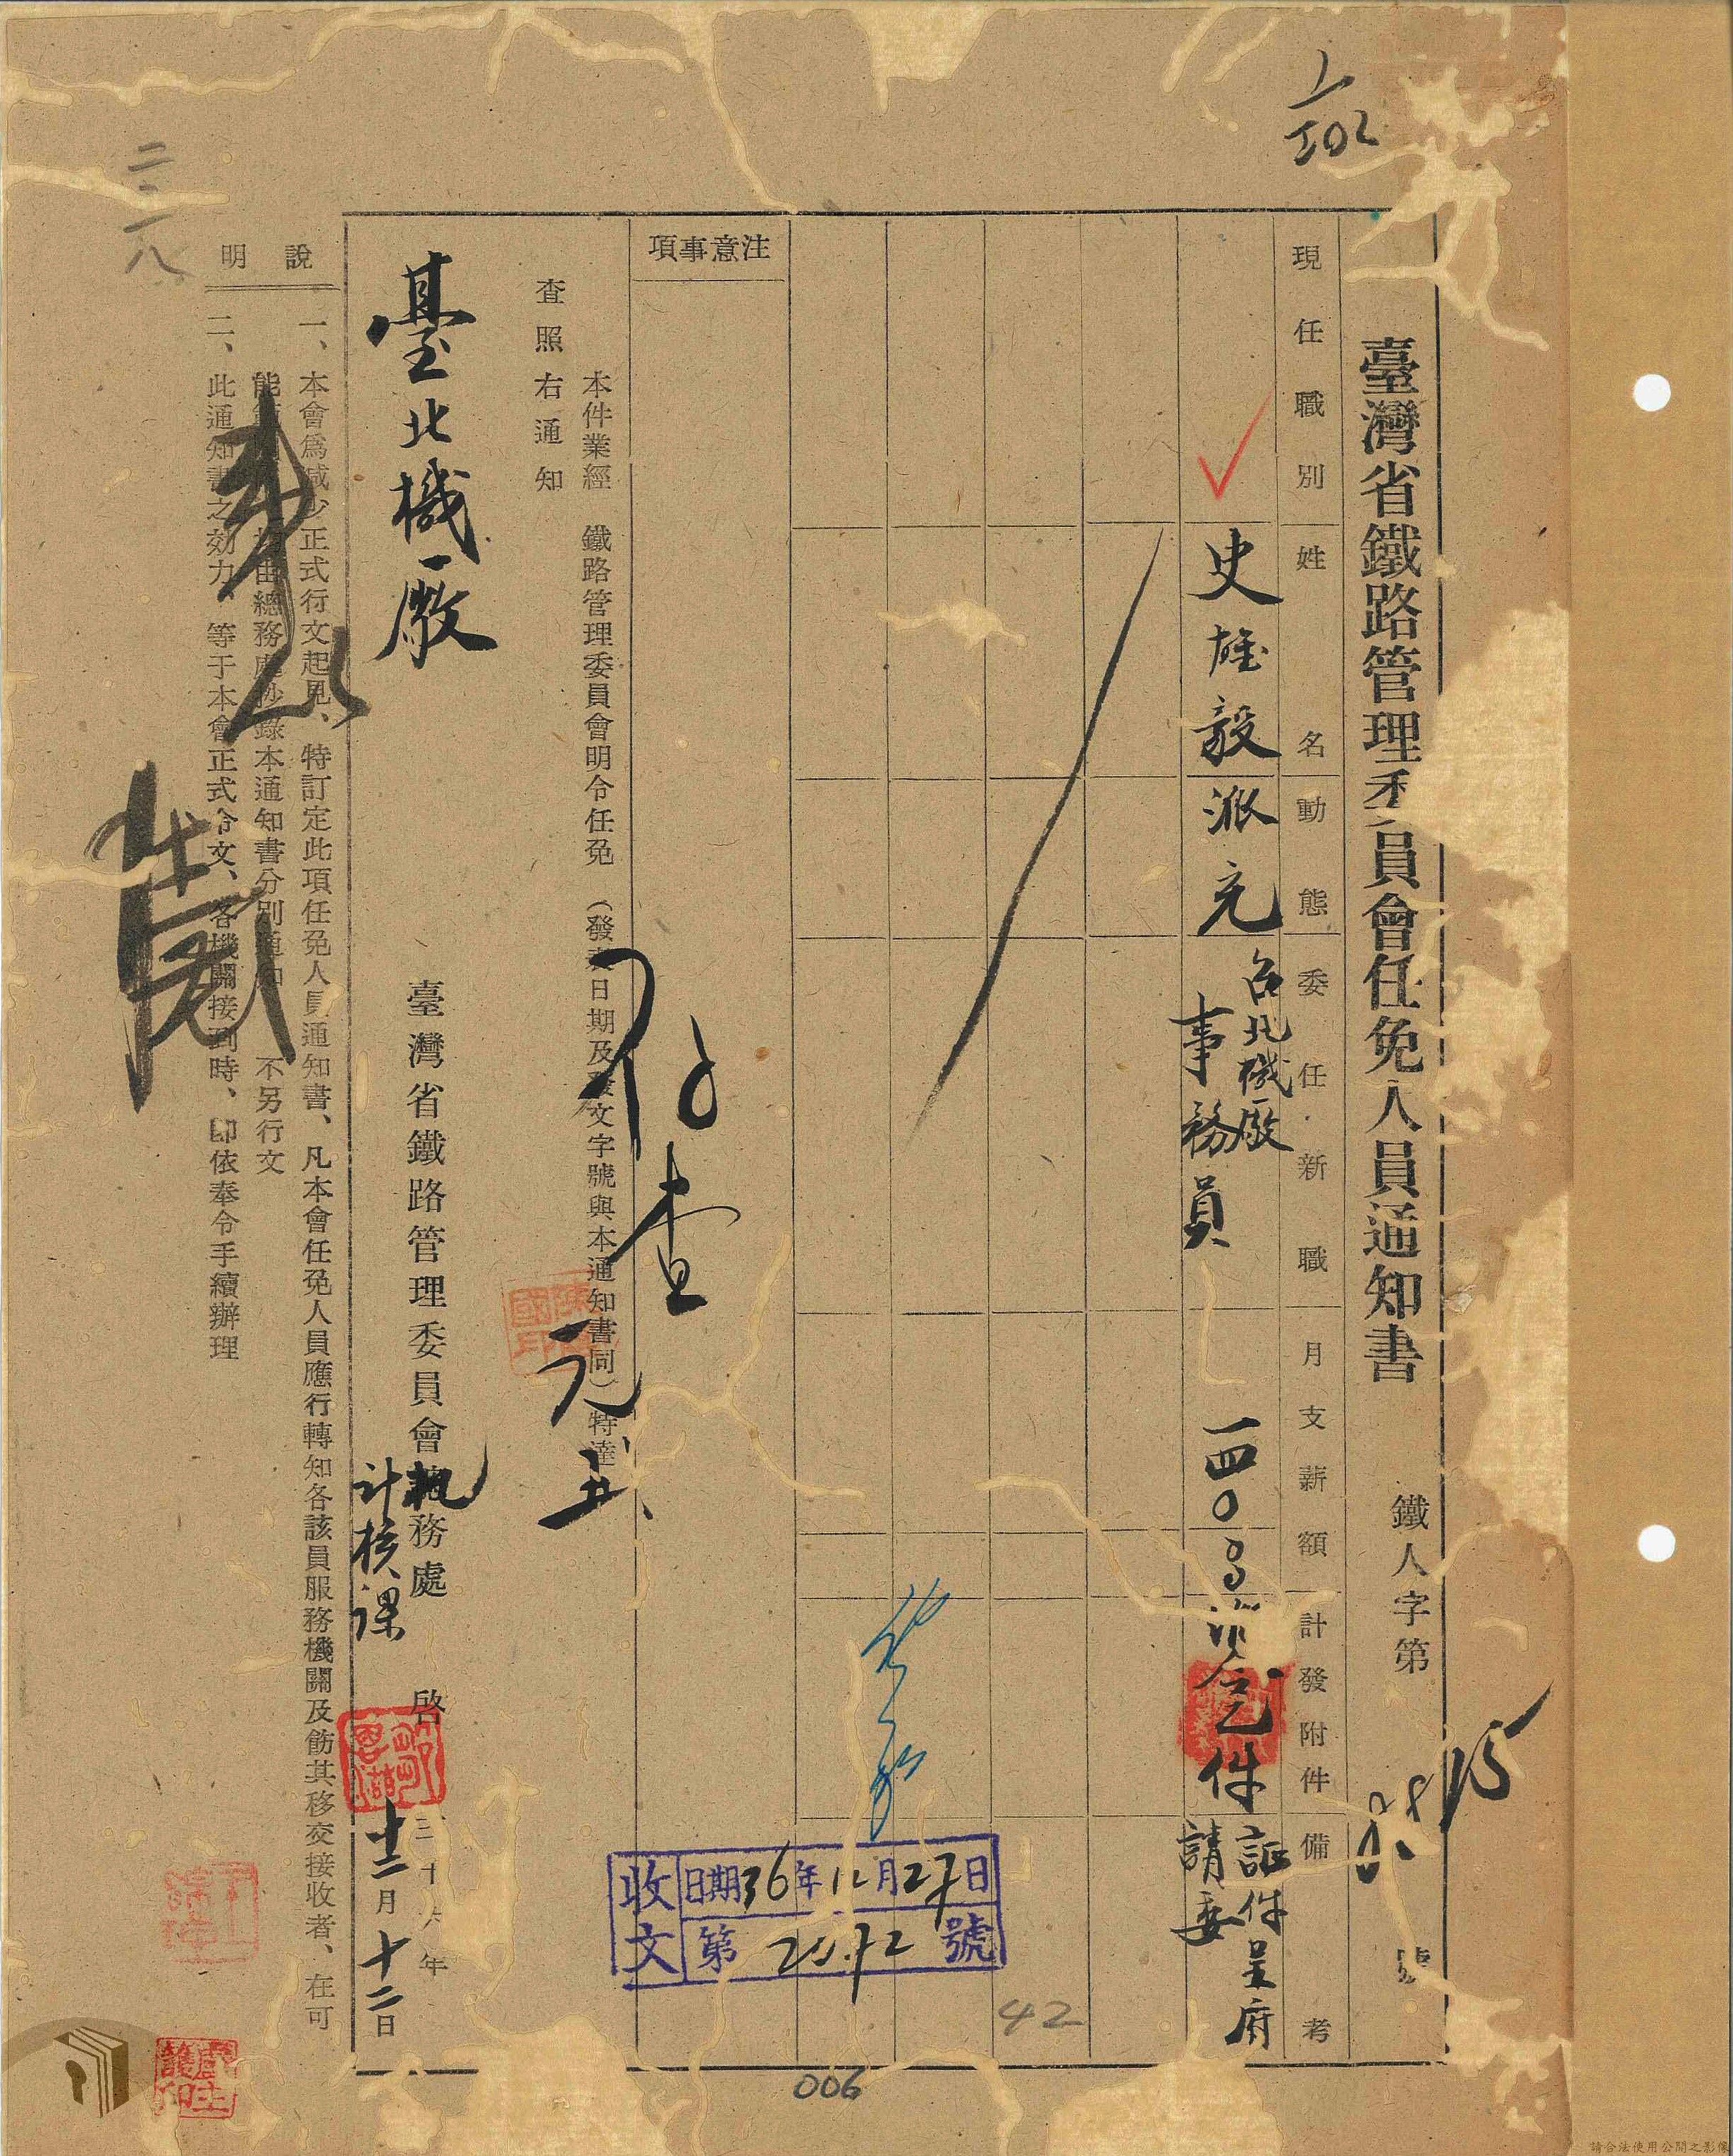 臺灣省鐵路管理委員會任免人員通知書
鐵人字第 號
現任職別
姓名
動態
委任新職
月支薪額
計發附件
備考
史雄毅
派充
台北機廠
事務員
一四〇
件
証件呈府
請委
注意事項
本件業經 鐵路管理委員會明令任免(發表日期及發文字號與本通知書同)特達
查照右通知
存查
元
臺北機廠
臺灣省鐵路管理委員會機務處 啓
計核課
三十六年
十二月十二日
說明
一、本會爲減少正式行文起見、特訂定此項任免人員通知書、凡本會任免人員應行轉知各該員服務機關及飭其移交接收者、在可
能 由總務處抄錄本通知書分別通知 不另行文
二、此通知書之効力、等于本會正式令文、各機關接到時、卽依奉令手續辦理
收文
日期36年12月27日
第 號
42
006
二二八
請合法使用公開之影像